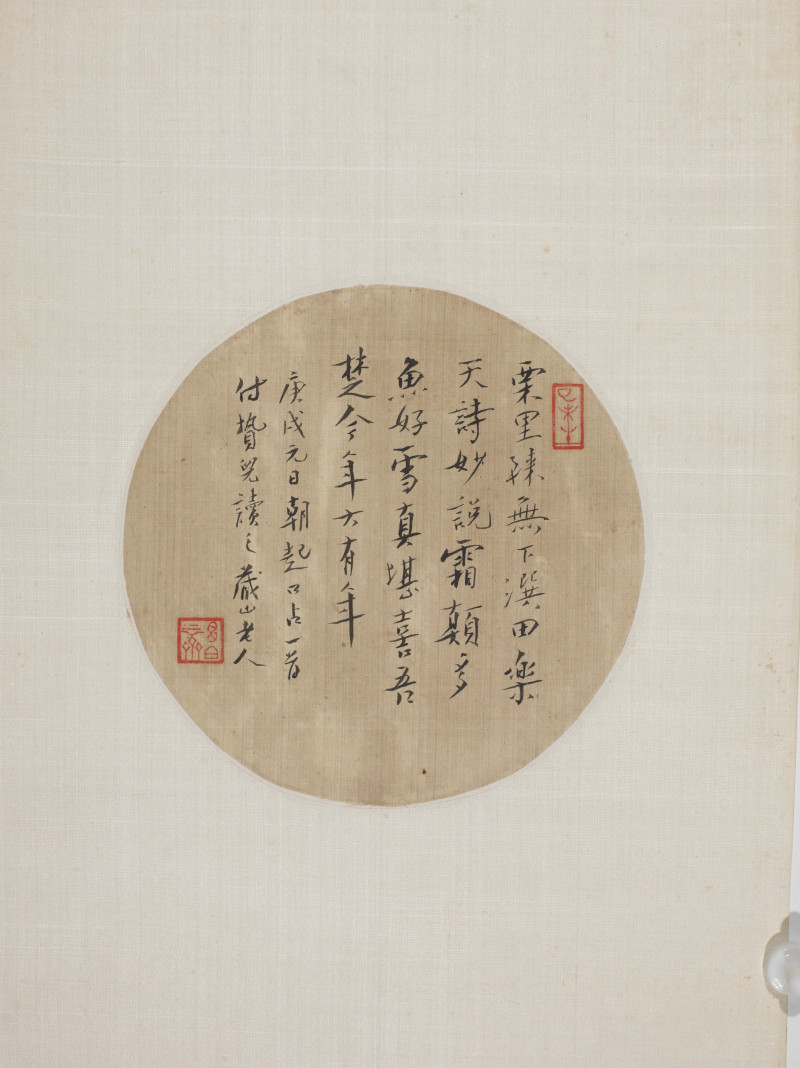 栗里殊無下潠田樂
天詩妙説霜顛多
魚好雪真堪喜吾
楚今年大有年
庚戌元日朝起口占一首
付贄兒讀之蕺山老人